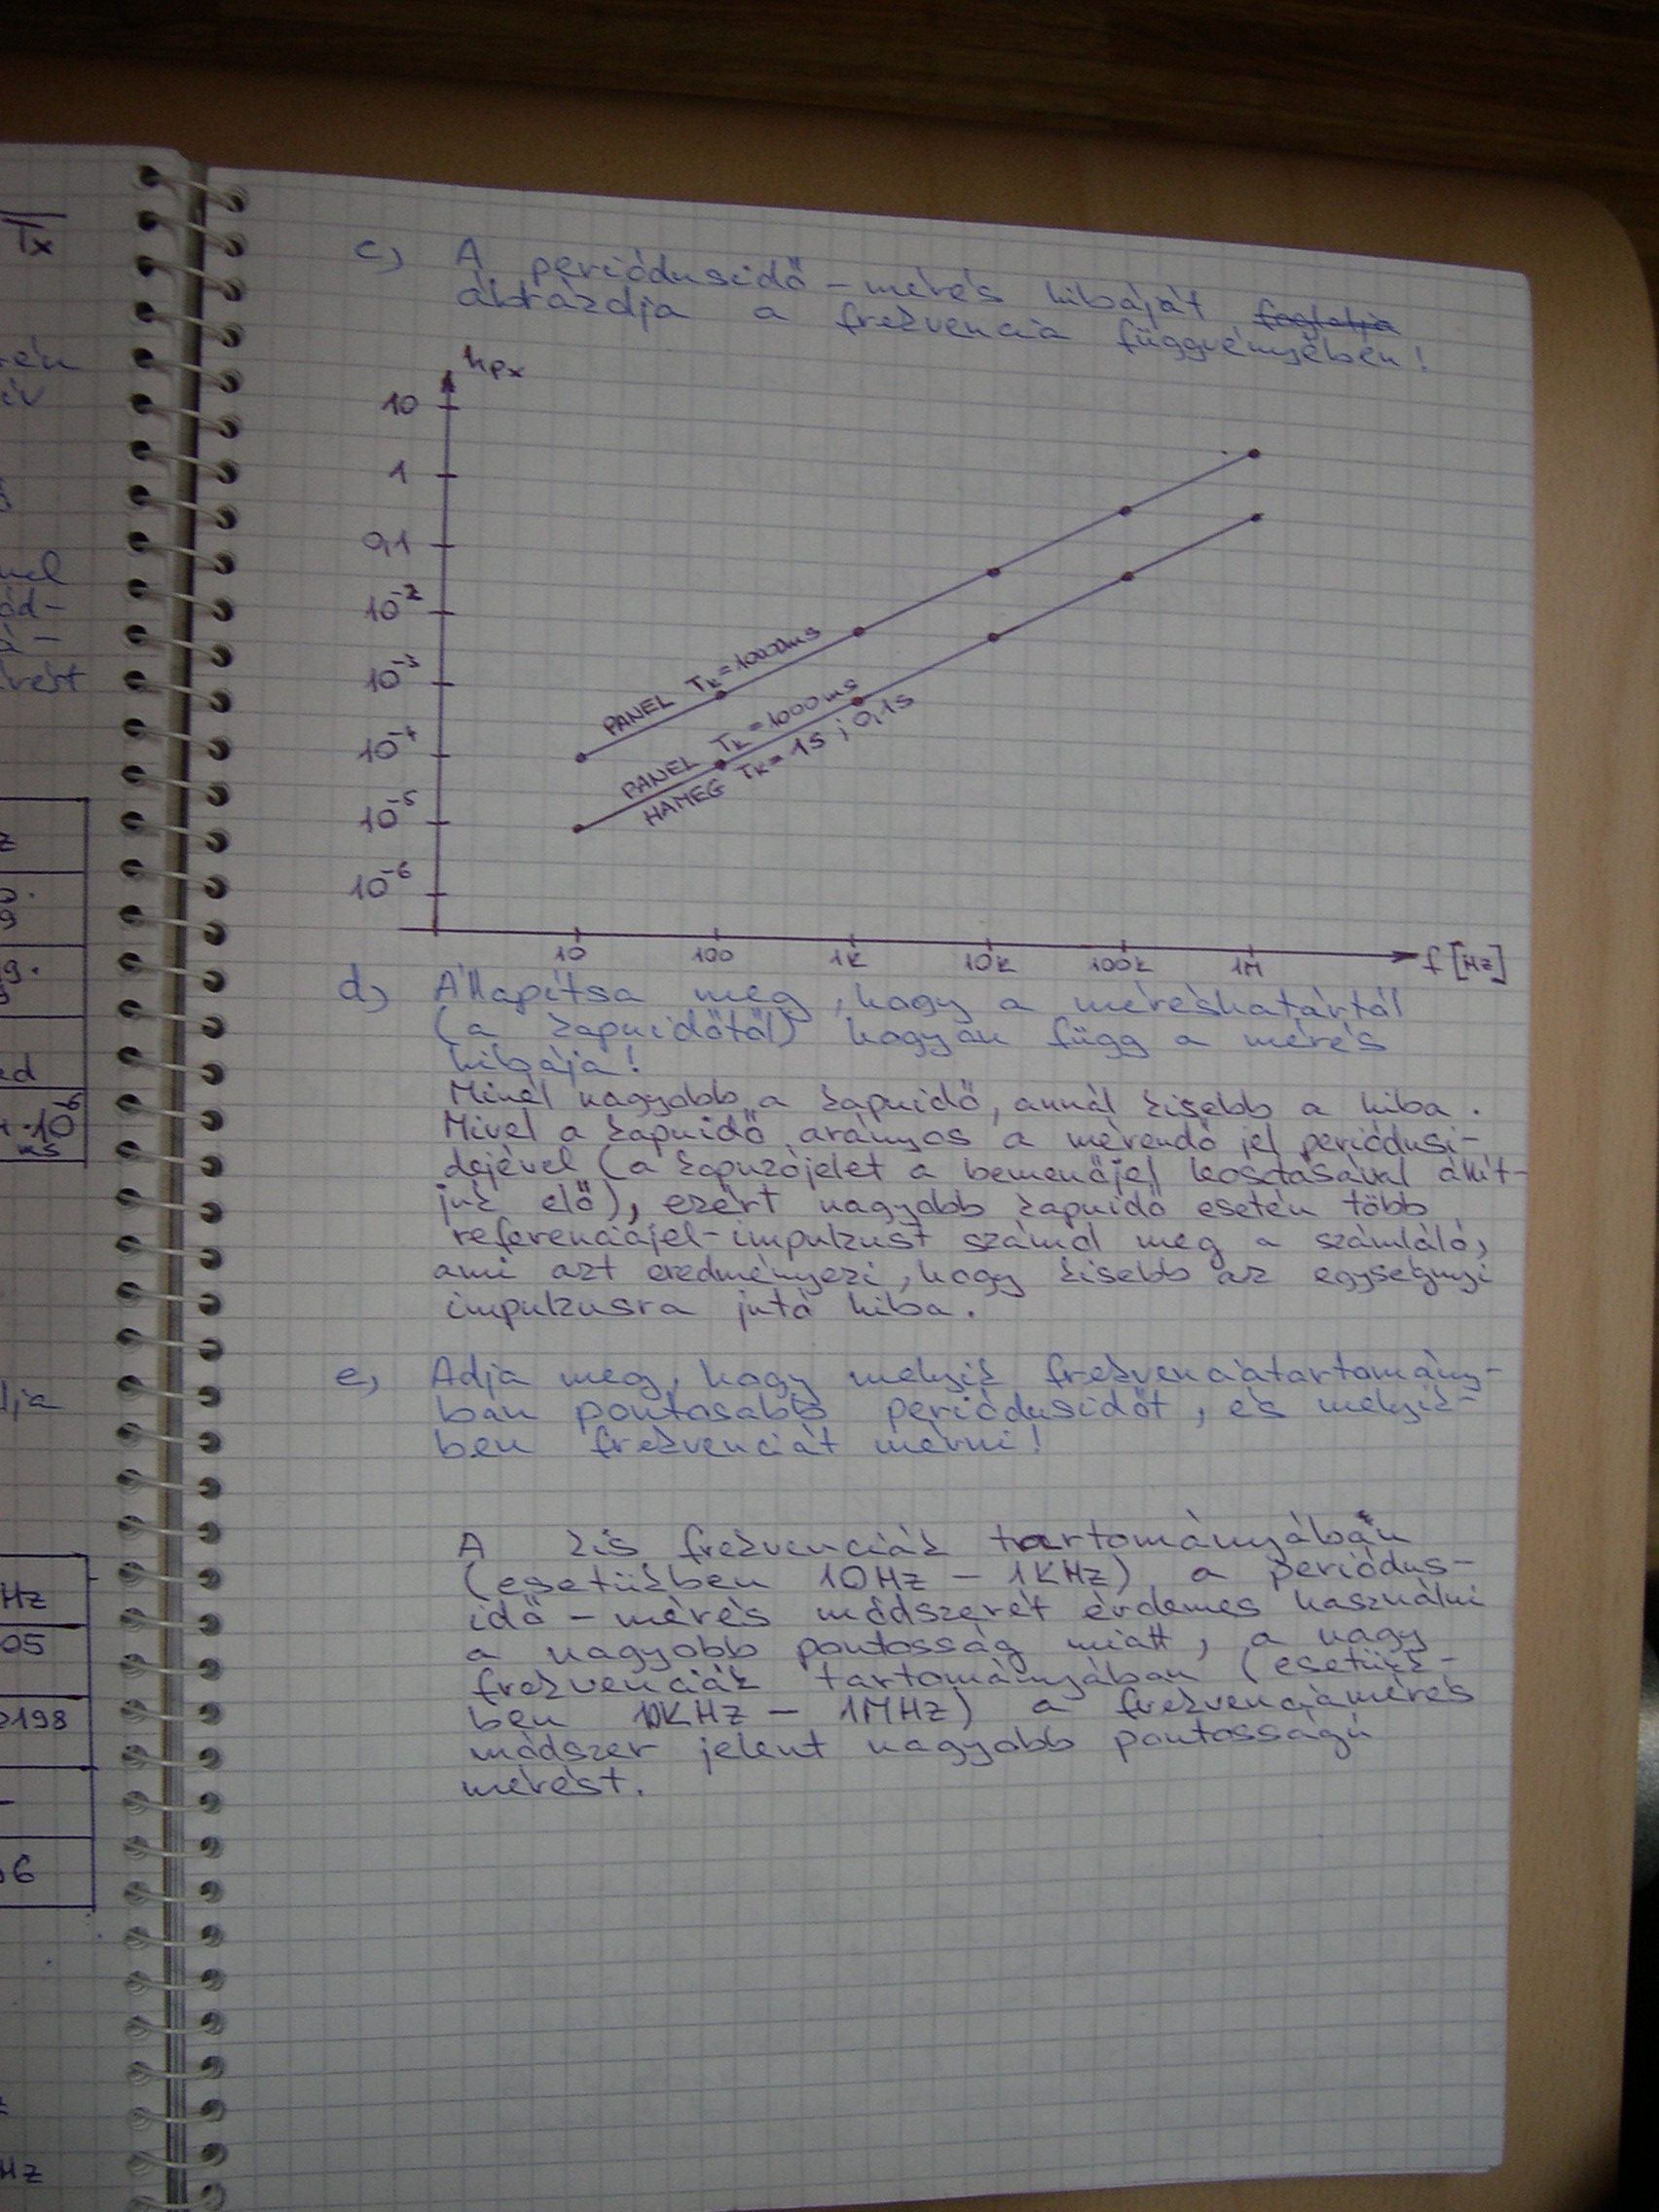 c, A periódusidő-mérés hibáját
ábrázolja a frekvencia függvényében!
hpx
10
1
0,1
10⁻²
10⁻³
10⁻⁴
10⁻⁵
10⁻⁶
PANEL Tk=10000ms
PANEL Tk=1000ms
HAMEG Tk=1s ; 0,1s
10 100 1k 10k 100k 1M f [Hz]
d, Állapítsa meg, hogy a méréshatártól
(a kapuidőtől) hogyan függ a mérés
hibája!
Minél nagyobb a kapuidő, annál kisebb a hiba.
Mivel a kapuidő arányos a mérendő jel periódusi-
dejével (a kapuzójelet a bemenőjel leosztásával állít-
juk elő), ezért nagyobb kapuidő esetén több
referenciajel-impulzust számol meg a számláló,
ami azt eredményezi, hogy kisebb az egységnyi
impulzusra jutó hiba.
e, Adja meg, hogy melyik frekvenciatartomány-
ban pontosabb periódusidőt, és melyik-
ben frekvenciát mérni!
A kis frekvenciák tartományában
(esetükben 10Hz - 1KHz) a periódus-
idő-mérés módszerét érdemes használni
a nagyobb pontosság miatt, a nagy
frekvenciák tartományában (esetük-
ben 10KHz - 1MHz) a frekvenciamérés
módszer jelent nagyobb pontosságú
mérést.
Tx
rén
ív
nel
ód-
á-
rést
z
g.
ed
·10⁻⁶
ms
lja
Hz
05
198
6
Hz